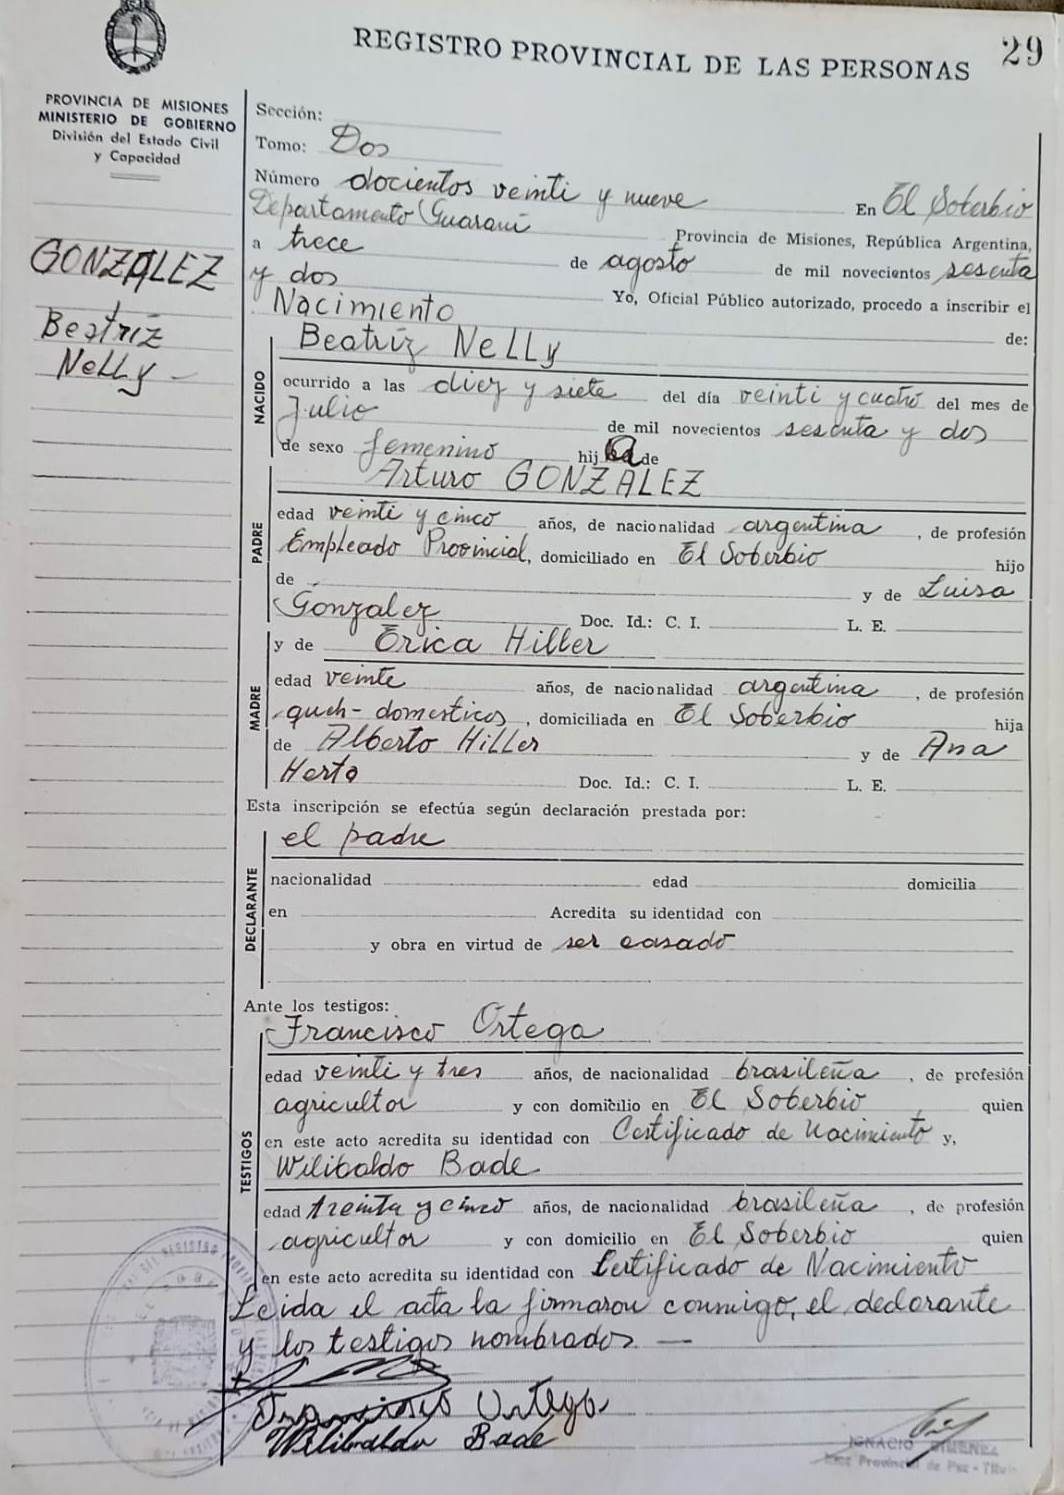 REGISTRO PROVINCIAL DE LAS PERSONAS
29
PROVINCIA DE MISIONES
MINISTERIO DE GOBIERNO
División del Estado Civil
y Capacidad
GONZALEZ
Beatriz
Nelly
Sección:
Tomo: Dos
Número docientos veinti y nueve En El Soberbio
Departamento Guaraní Provincia de Misiones, República Argentina,
a trece de agosto de mil novecientos sesenta
y dos Yo, Oficial Público autorizado, procedo a inscribir el
Nacimiento de:
NACIDO
Beatriz Nelly
ocurrido a las diez y siete del día veinti y cuatro del mes de
Julio de mil novecientos sesenta y dos
de sexo femenino hij a de
PADRE
Arturo GONZALEZ
edad veinti y cinco años, de nacionalidad argentina, de profesión
Empleado Provincial, domiciliado en El Soberbio hijo
de y de Luisa
Gonzalez Doc. Id.: C. I. L. E.
MADRE
y de Erica Hiller
edad veinte años, de nacionalidad argentina, de profesión
queh-domesticos, domiciliada en El Soberbio hija
de Alberto Hiller y de Ana
Herta Doc. Id.: C. I. L. E.
Esta inscripción se efectúa según declaración prestada por:
DECLARANTE
el padre
nacionalidad edad domicilia
en Acredita su identidad con
y obra en virtud de ser casado
Ante los testigos:
TESTIGOS
Francisco Ortega
edad veinti y tres años, de nacionalidad brasileña, de profesión
agricultor y con domicilio en El Soberbio quien
en este acto acredita su identidad con Certificado de Nacimiento y,
Wilibaldo Bade
edad treinta y cinco años, de nacionalidad brasileña, de profesión
agricultor y con domicilio en El Soberbio quien
en este acto acredita su identidad con Certificado de Nacimiento
Leida el acta la firmaron conmigo, el declarante
y los testigos nombrados —
Francisco Ortega
Wilibaldo Bade
IGNACIO GIMENEZ
Juez Provincial de Paz - Titular